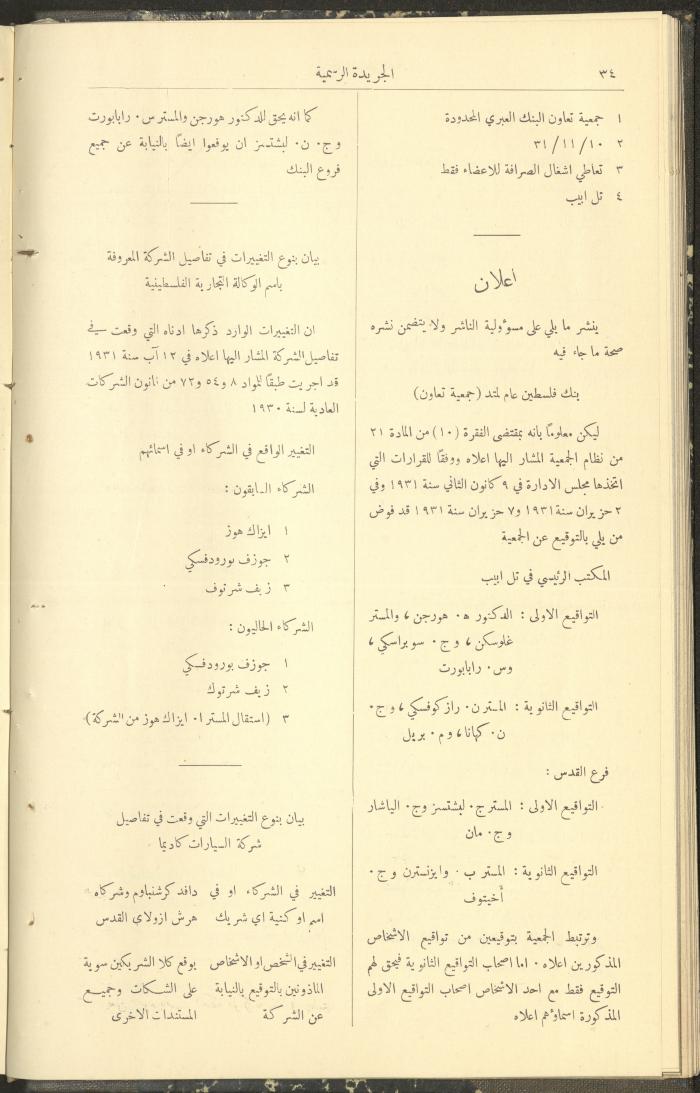 ٣٤
الجريدة الرسمية
١ جمعية تعاون البنك العبري المحدودة
٢ ٣١/١١/١٠
٣ تعاطي اشغال الصرافة للاعضاء فقط
٤ تل ابيب
اعلان
ينشر ما يلي على مسؤولية الناشر ولا يتضمن نشره
صحة ما جاء فيه
بنك فلسطين عام لمتد (جمعية تعاون)
ليكن معلومًا بانه بمقتضى الفقرة (١٠) من المادة ٢١
من نظام الجمعية المشار اليها اعلاه ووفقًا للقرارات التي
اتخذها مجلس الادارة في ٩ كانون الثاني سنة ١٩٣١ وفي
٢ حزيران سنة ١٩٣١ و٧ حزيران سنة ١٩٣١ قد فوض
من يلي بالتوقيع عن الجمعية
المكتب الرئيسي في تل ابيب
التواقيع الاولى : الدكتور ه. هورجن، والمستر
غلوسكن، و ج. سوبراسكي،
وس. رابابورت
التواقيع الثانوية : المستر ن. رازكوفسكي، و ج.
ن. كهانا، و م. بريل
فرع القدس :
التواقيع الاولى : المستر ج. لبشتسز و ج. الياشار
و ج. مان
التواقيع الثانوية : المستر ب. وايزنسترن و ج.
أخيتوف
وترتبط الجمعية بتوقيعين من تواقيع الاشخاص
المذكورين اعلاه. اما اصحاب التواقيع الثانوية فيحق لهم
التوقيع فقط مع احد الاشخاص اصحاب التواقيع الاولى
المذكورة اسماؤهم اعلاه
كما انه يحق للدكتور هورجن والمستر س. رابابورت
و ج. ن. لبشتسز ان يوقعوا ايضًا بالنيابة عن جميع
فروع البنك
بيان بنوع التغييرات في تفاصيل الشركة المعروفة
باسم الوكالة التجارية الفلسطينية
ان التغييرات الوارد ذكرها ادناه التي وقعت في
تفاصيل الشركة المشار اليها اعلاه في ١٢ آب سنة ١٩٣١
قد اجريت طبقًا للمواد ٨ و٥٤ و٧٢ من قانون الشركات
العادية لسنة ١٩٣٠
التغيير الواقع في الشركاء او في اسمائهم
الشركاء السابقون :
١ ايزاك هوز
٢ جوزف بورودفسكي
٣ زيف شرتوف
الشركاء الحاليون :
١ جوزف بورودفسكي
٢ زيف شرتوك
٣ (استقال المستر ا. ايزاك هوز من الشركة)
بيان بنوع التغييرات التي وقعت في تفاصيل
شركة السيارات كاديما
التغيير في الشركاء او في دافد كرشنباوم وشركاه
اسم او كنية اي شريك هرش ازولاي القدس
التغيير في الشخص او الاشخاص يوقع كلا الشريكين سوية
الماذونين بالتوقيع بالنيابة على الشكات وجميع
عن الشركة المستندات الاخرى